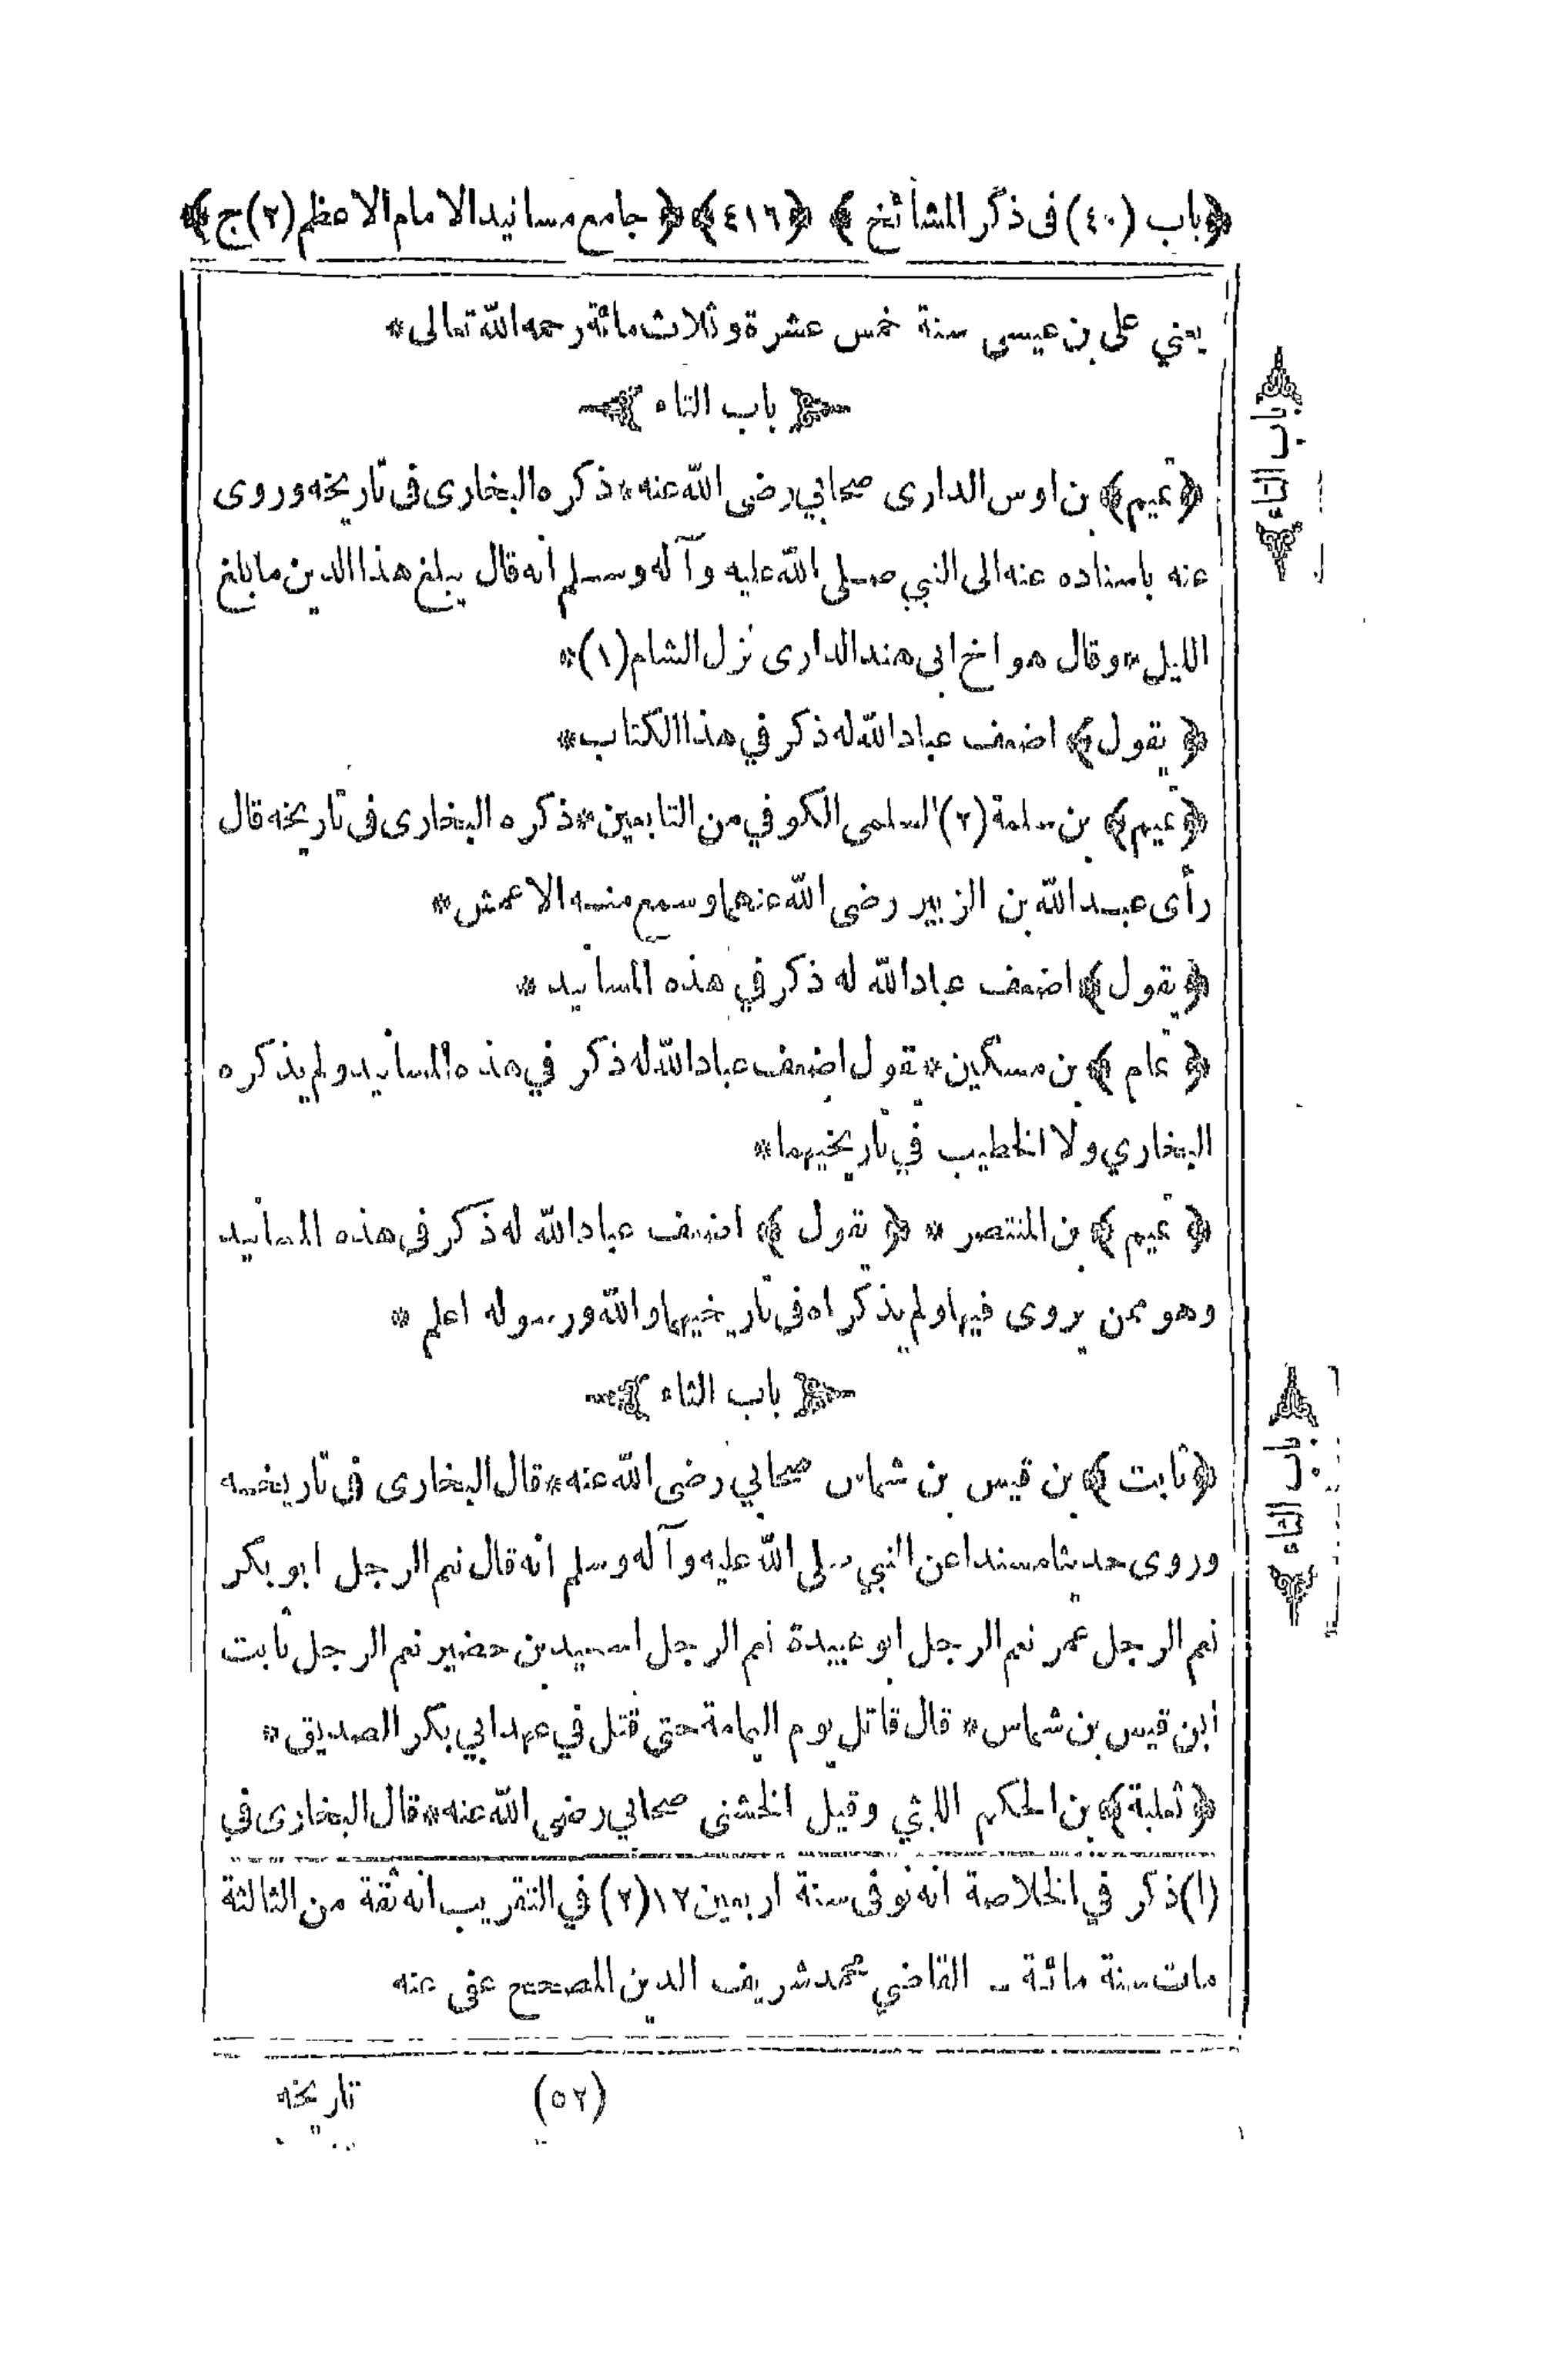 ﴿باب (٤٠) فى ذكر المشائخ﴾ ﴿٤١٦﴾ ﴿جامع مسانيد الامام الاعظم (٢) ج﴾
يعني على بن عيسى سنة خمس عشرة وثلاث مائة رحمه الله تعالى *
باب التاء
﴿تميم﴾ بن اوس الدارى صحابي رضى الله عنه * ذكره البخارى فى تاريخه وروى
عنه باسناده عنه الى النبي صلى الله عليه وآله وسلم انه قال يبلغ هذا الدين ما بلغ
الليل * وقال هو اخ ابى هند الدارى نزل الشام (١) *
﴿يقول﴾ اضعف عباد الله له ذكر في هذا الكتاب *
﴿تميم﴾ بن سلمة (٢) السلمى الكوفي من التابعين * ذكره البخارى فى تاريخه قال
رأى عبد الله بن الزبير رضى الله عنهما وسمع منه الاعمش *
﴿يقول﴾ اضعف عباد الله له ذكر في هذه المسانيد *
﴿تمام﴾ بن مسكين * يقول اضعف عباد الله له ذكر في هذه المسانيد ولم يذكره
البخاري ولا الخطيب في تاريخيهما *
﴿تميم﴾ بن المنتصر * ﴿يقول﴾ اضعف عباد الله له ذكر فى هذه المسانيد
وهو ممن يروى فيها ولم يذكراه فى تاريخيهما والله ورسوله اعلم *
باب الثاء
﴿ثابت﴾ بن قيس بن شماس صحابي رضى الله عنه * قال البخارى فى تاريخه
وروى حديثا مسندا عن النبي صلى الله عليه وآله وسلم انه قال نعم الرجل ابو بكر
نعم الرجل عمر نعم الرجل ابو عبيدة نعم الرجل اسيد بن حضير نعم الرجل ثابت
ابن قيس بن شماس * قال قاتل يوم اليمامة حتى قتل في عهد ابي بكر الصديق *
﴿ثعلبة﴾ بن الحكم الليثي وقيل الخشنى صحابي رضى الله عنه * قال البخارى في
(١) ذكر في الخلاصة انه توفى سنة اربعين ١٢ (٢) في التقريب انه ثقة من الثالثة
مات سنة مائة ـ القاضي محمد شريف الدين المصحح عفى عنه
(٥٢) تاريخه
باب التاء
باب الثاء